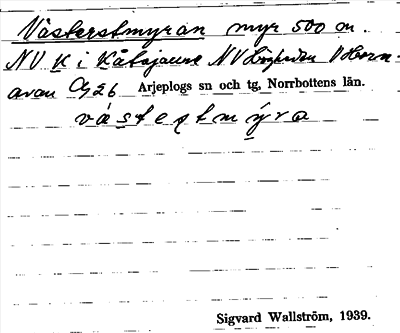 Västerstmyran myr 500 m.
NV K i Kåtajaure NV
avan Cg 26 Arjeplogs sn och tg, Norrbottens län.
västestmýra
Sigvard Wallström, 1939.